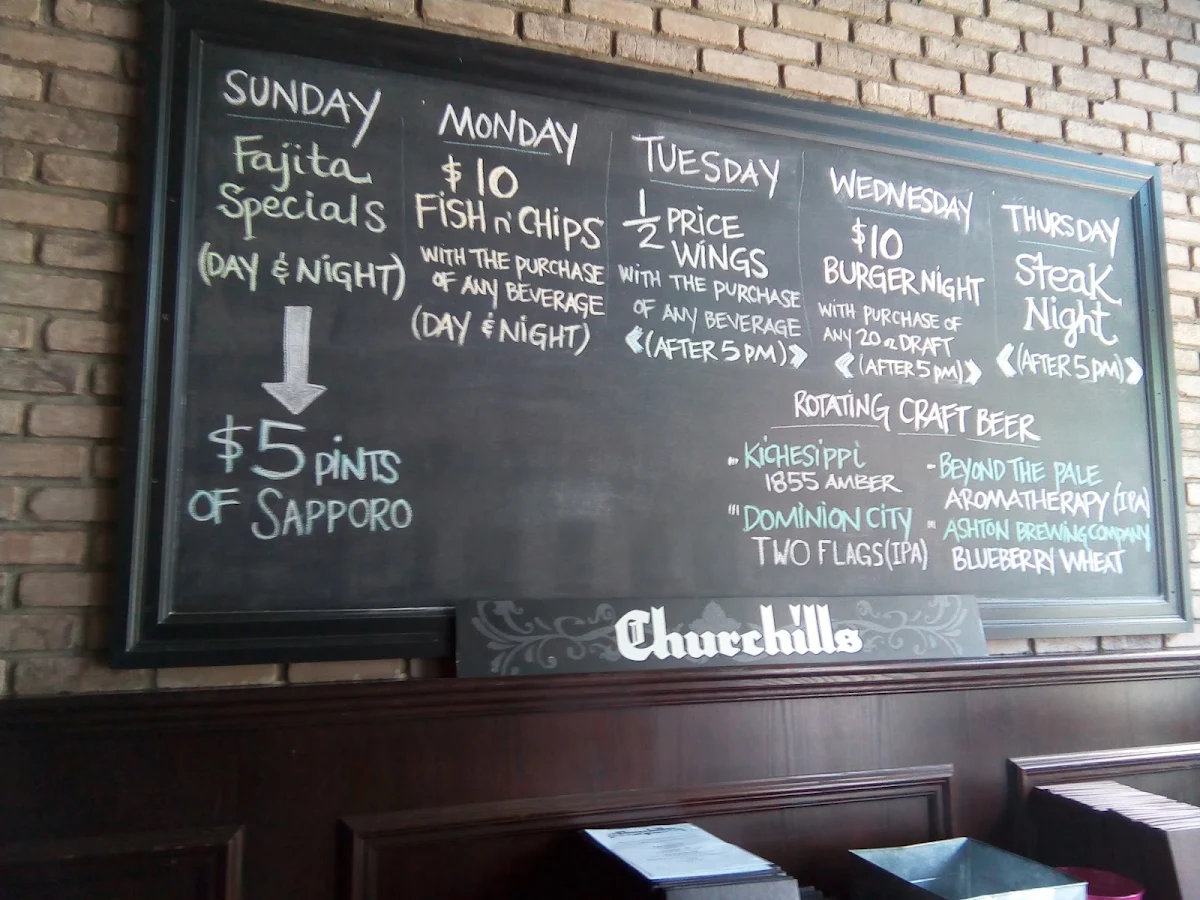 SUNDAY
Fajita
Specials
(DAY & NiGHT)
$5 PiNTS
OF SAPPORO
MONDAY
$10
FiSH n' CHiPS
WITH THE PURCHASE
OF ANY BEVERAGE
(DAY & NiGHT)
TUESDAY
1/2 PRICE
WINGS
WITH THE PURCHASE
OF ANY BEVERAGE
(AFTER 5 PM)
WEDNESDAY
$10
BURGER NIGHT
WITH PURCHASE OF
ANY 20 oz DRAFT
(AFTER 5 PM)
THURSDAY
Steak
Night
(AFTER 5 PM)
ROTATING CRAFT BEER
KiCHESiPPi
1855 AMBER
DOMINION CITY
TWO FLAGS (IPA)
BEYOND THE PALE
AROMATHERAPY (IPA)
ASHTON BREWING COMPANY
BLUEBERRY WHEAT
Churchills